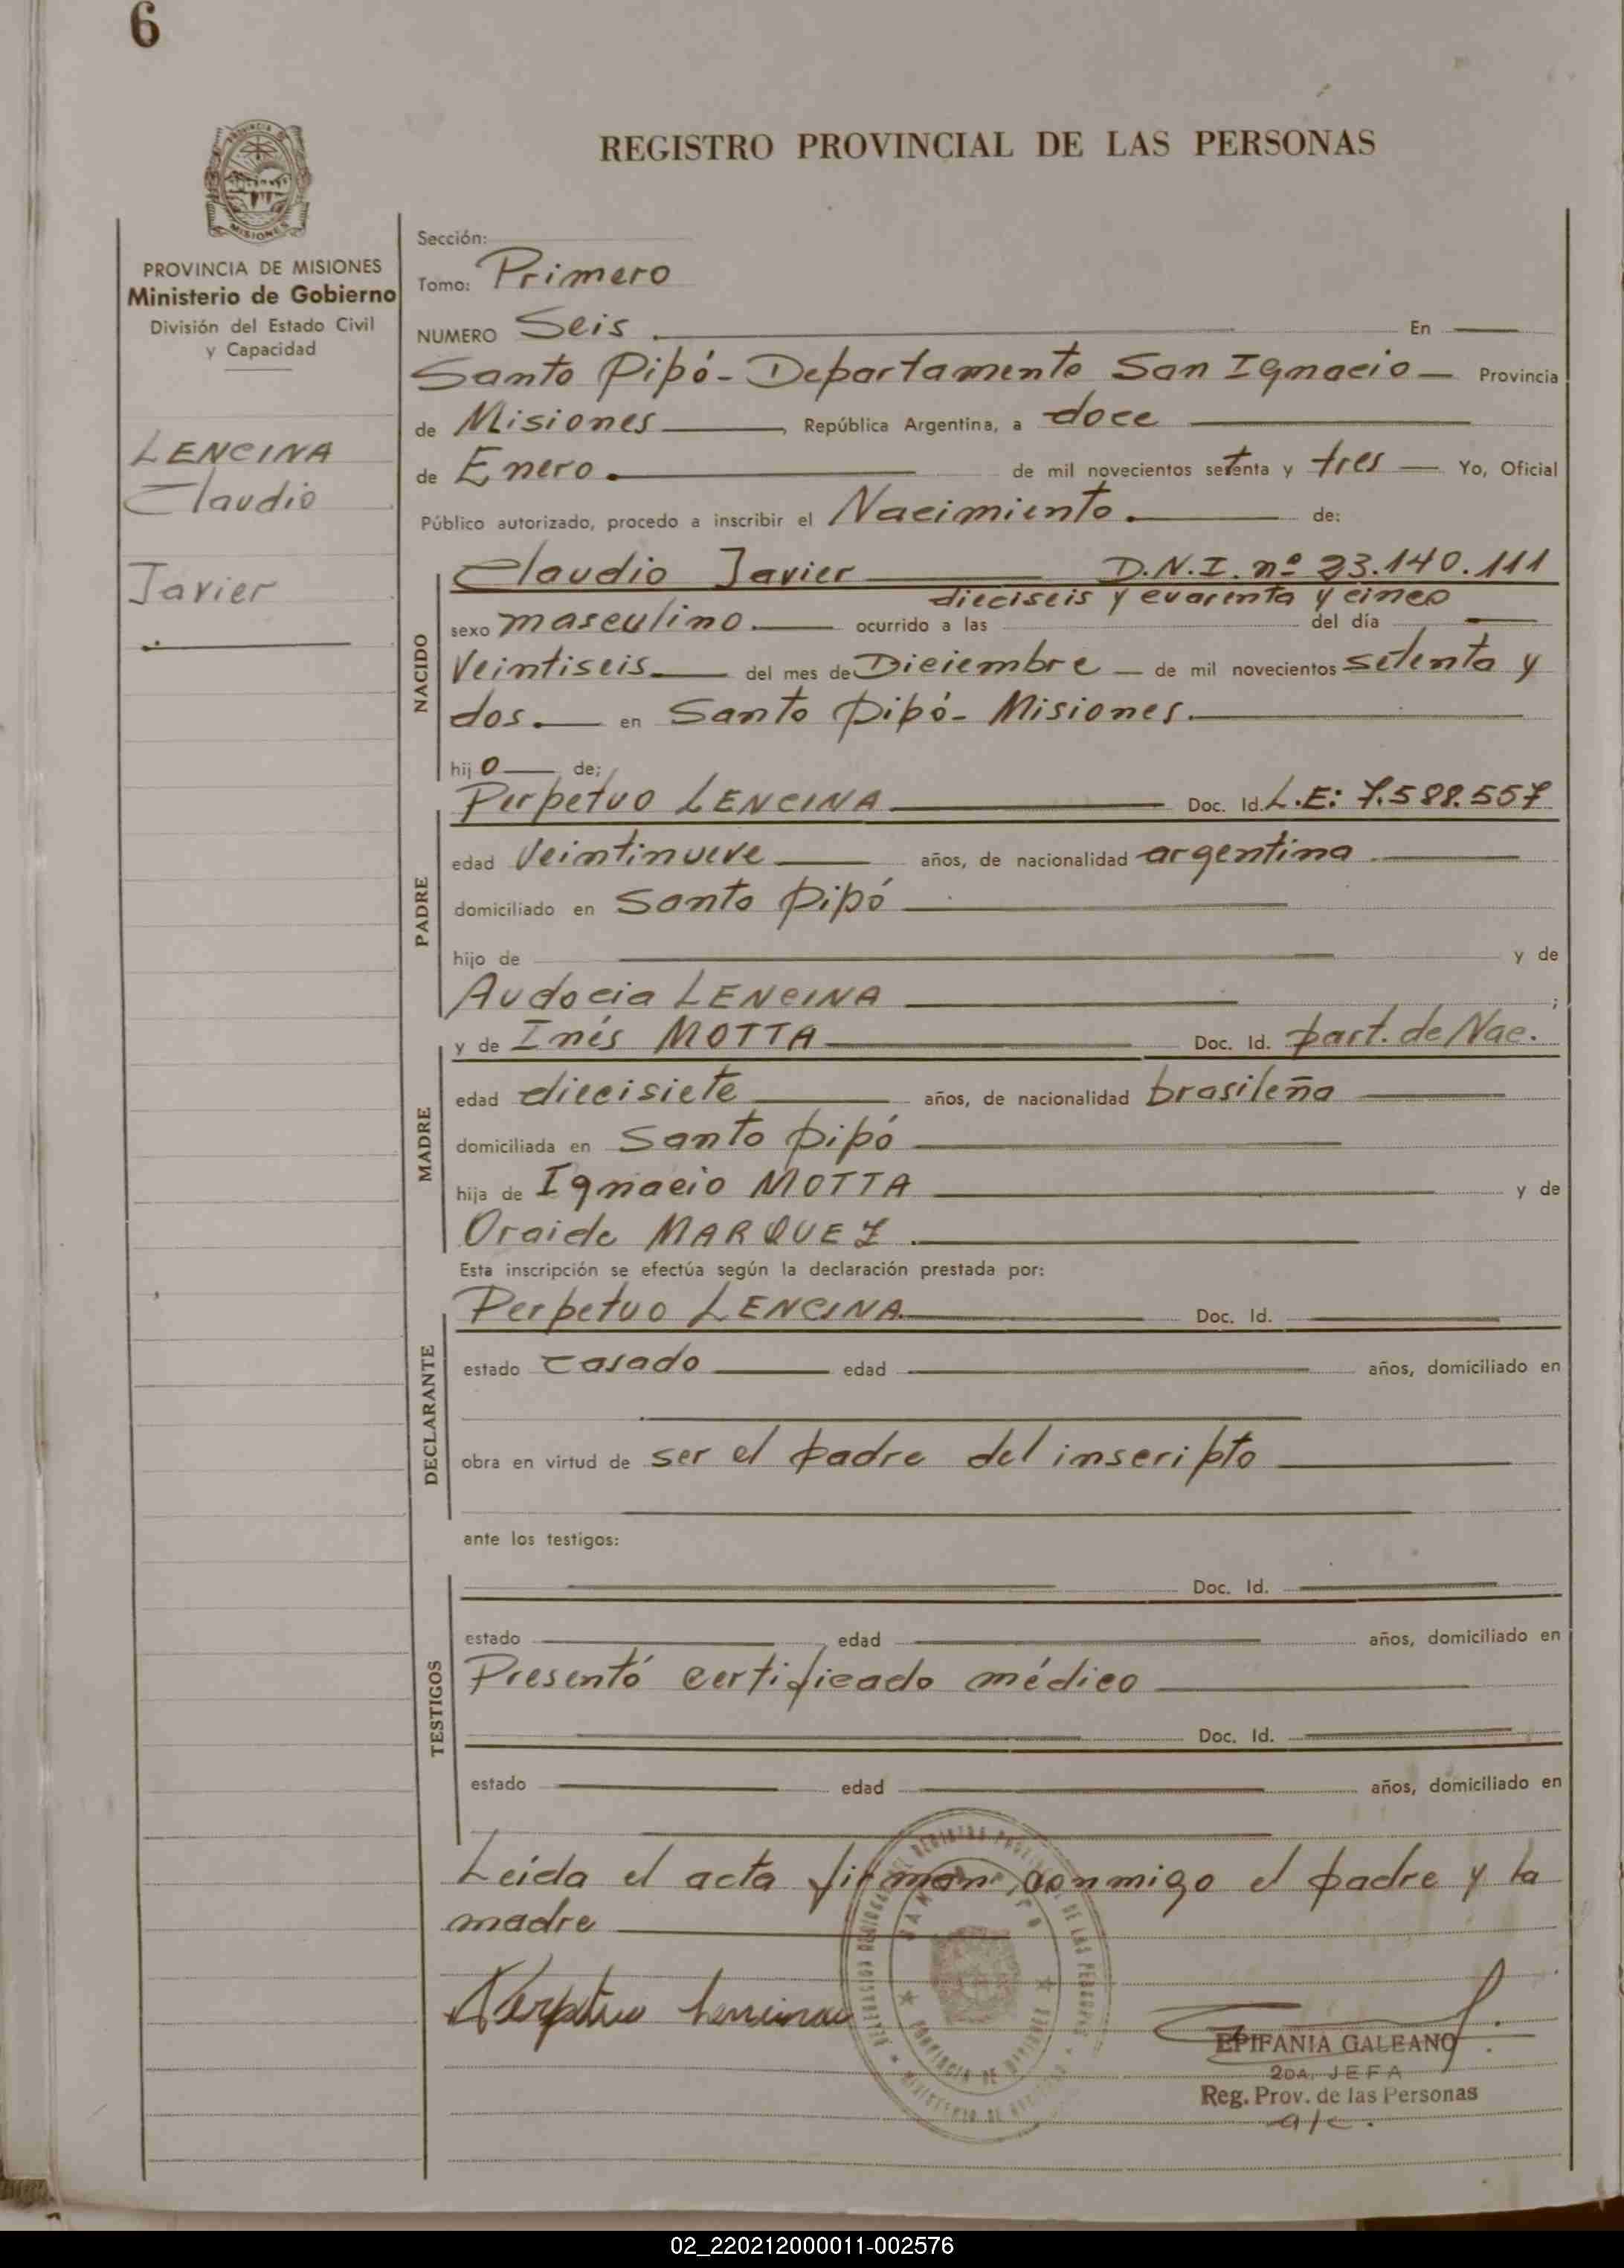 6
REGISTRO PROVINCIAL DE LAS PERSONAS
PROVINCIA DE MISIONES
Ministerio de Gobierno
División del Estado Civil
y Capacidad
LENCINA
Claudio
Javier
Sección:
Tomo: Primero
NUMERO Seis En
Santo Pipó - Departamento San Ignacio Provincia
de Misiones, República Argentina, a doce
de Enero. de mil novecientos setenta y tres Yo, Oficial
Público autorizado, procedo a inscribir el Nacimiento. de:
NACIDO
Claudio Javier D.N.I. nº 23.140.111
dieciseis y cuarenta y cinco
sexo masculino. ocurrido a las del día
Veintiseis del mes de Diciembre de mil novecientos setenta y
dos. en Santo Pipó - Misiones.
hijo de;
PADRE
Perpetuo LENCINA Doc. Id. L.E: 7.588.557
edad Veintinueve años, de nacionalidad argentina
domiciliado en Santo Pipó
hijo de y de
Audocia LENCINA ;
MADRE
y de Inés MOTTA Doc. Id. part. de Nac.
edad diecisiete años, de nacionalidad brasileña
domiciliada en Santo Pipó
hija de Ignacio MOTTA y de
Oraide MARQUEZ
Esta inscripción se efectúa según la declaración prestada por:
DECLARANTE
Perpetuo LENCINA Doc. Id.
estado casado edad años, domiciliado en
obra en virtud de ser el padre del inscripto
ante los testigos:
TESTIGOS
Doc. Id.
estado, edad años, domiciliado en
Presentó certificado médico
Doc. Id.
estado edad años, domiciliado en
Leída el acta firman conmigo el padre y la
madre
Perpetuo Lencina
EPIFANIA GALEANO
2DA. JEFA
Reg. Prov. de las Personas
a/c.
02_220212000011-002576